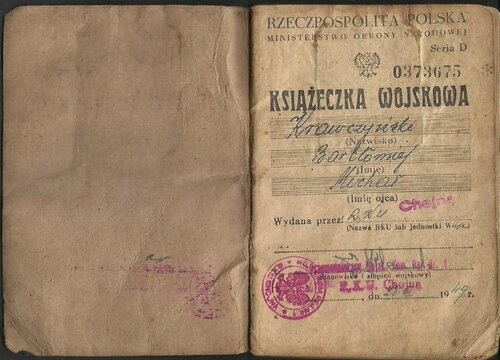 RZECZPOSPOLITA POLSKA
MINISTERSTWO OBRONY NARODOWEJ
Seria D
0373675
KSIĄŻECZKA WOJSKOWA
Krawczyński
(Nazwisko)
Bartłomiej
(Imię)
Michał
(Imię ojca)
Wydana przez: R.K.U Chojna
(Nazwa RKU lub jednostki Wojsk.)
(Stanowisko i stopień wojskowy)
R.K.U. Chojna
dn. 1949 r.